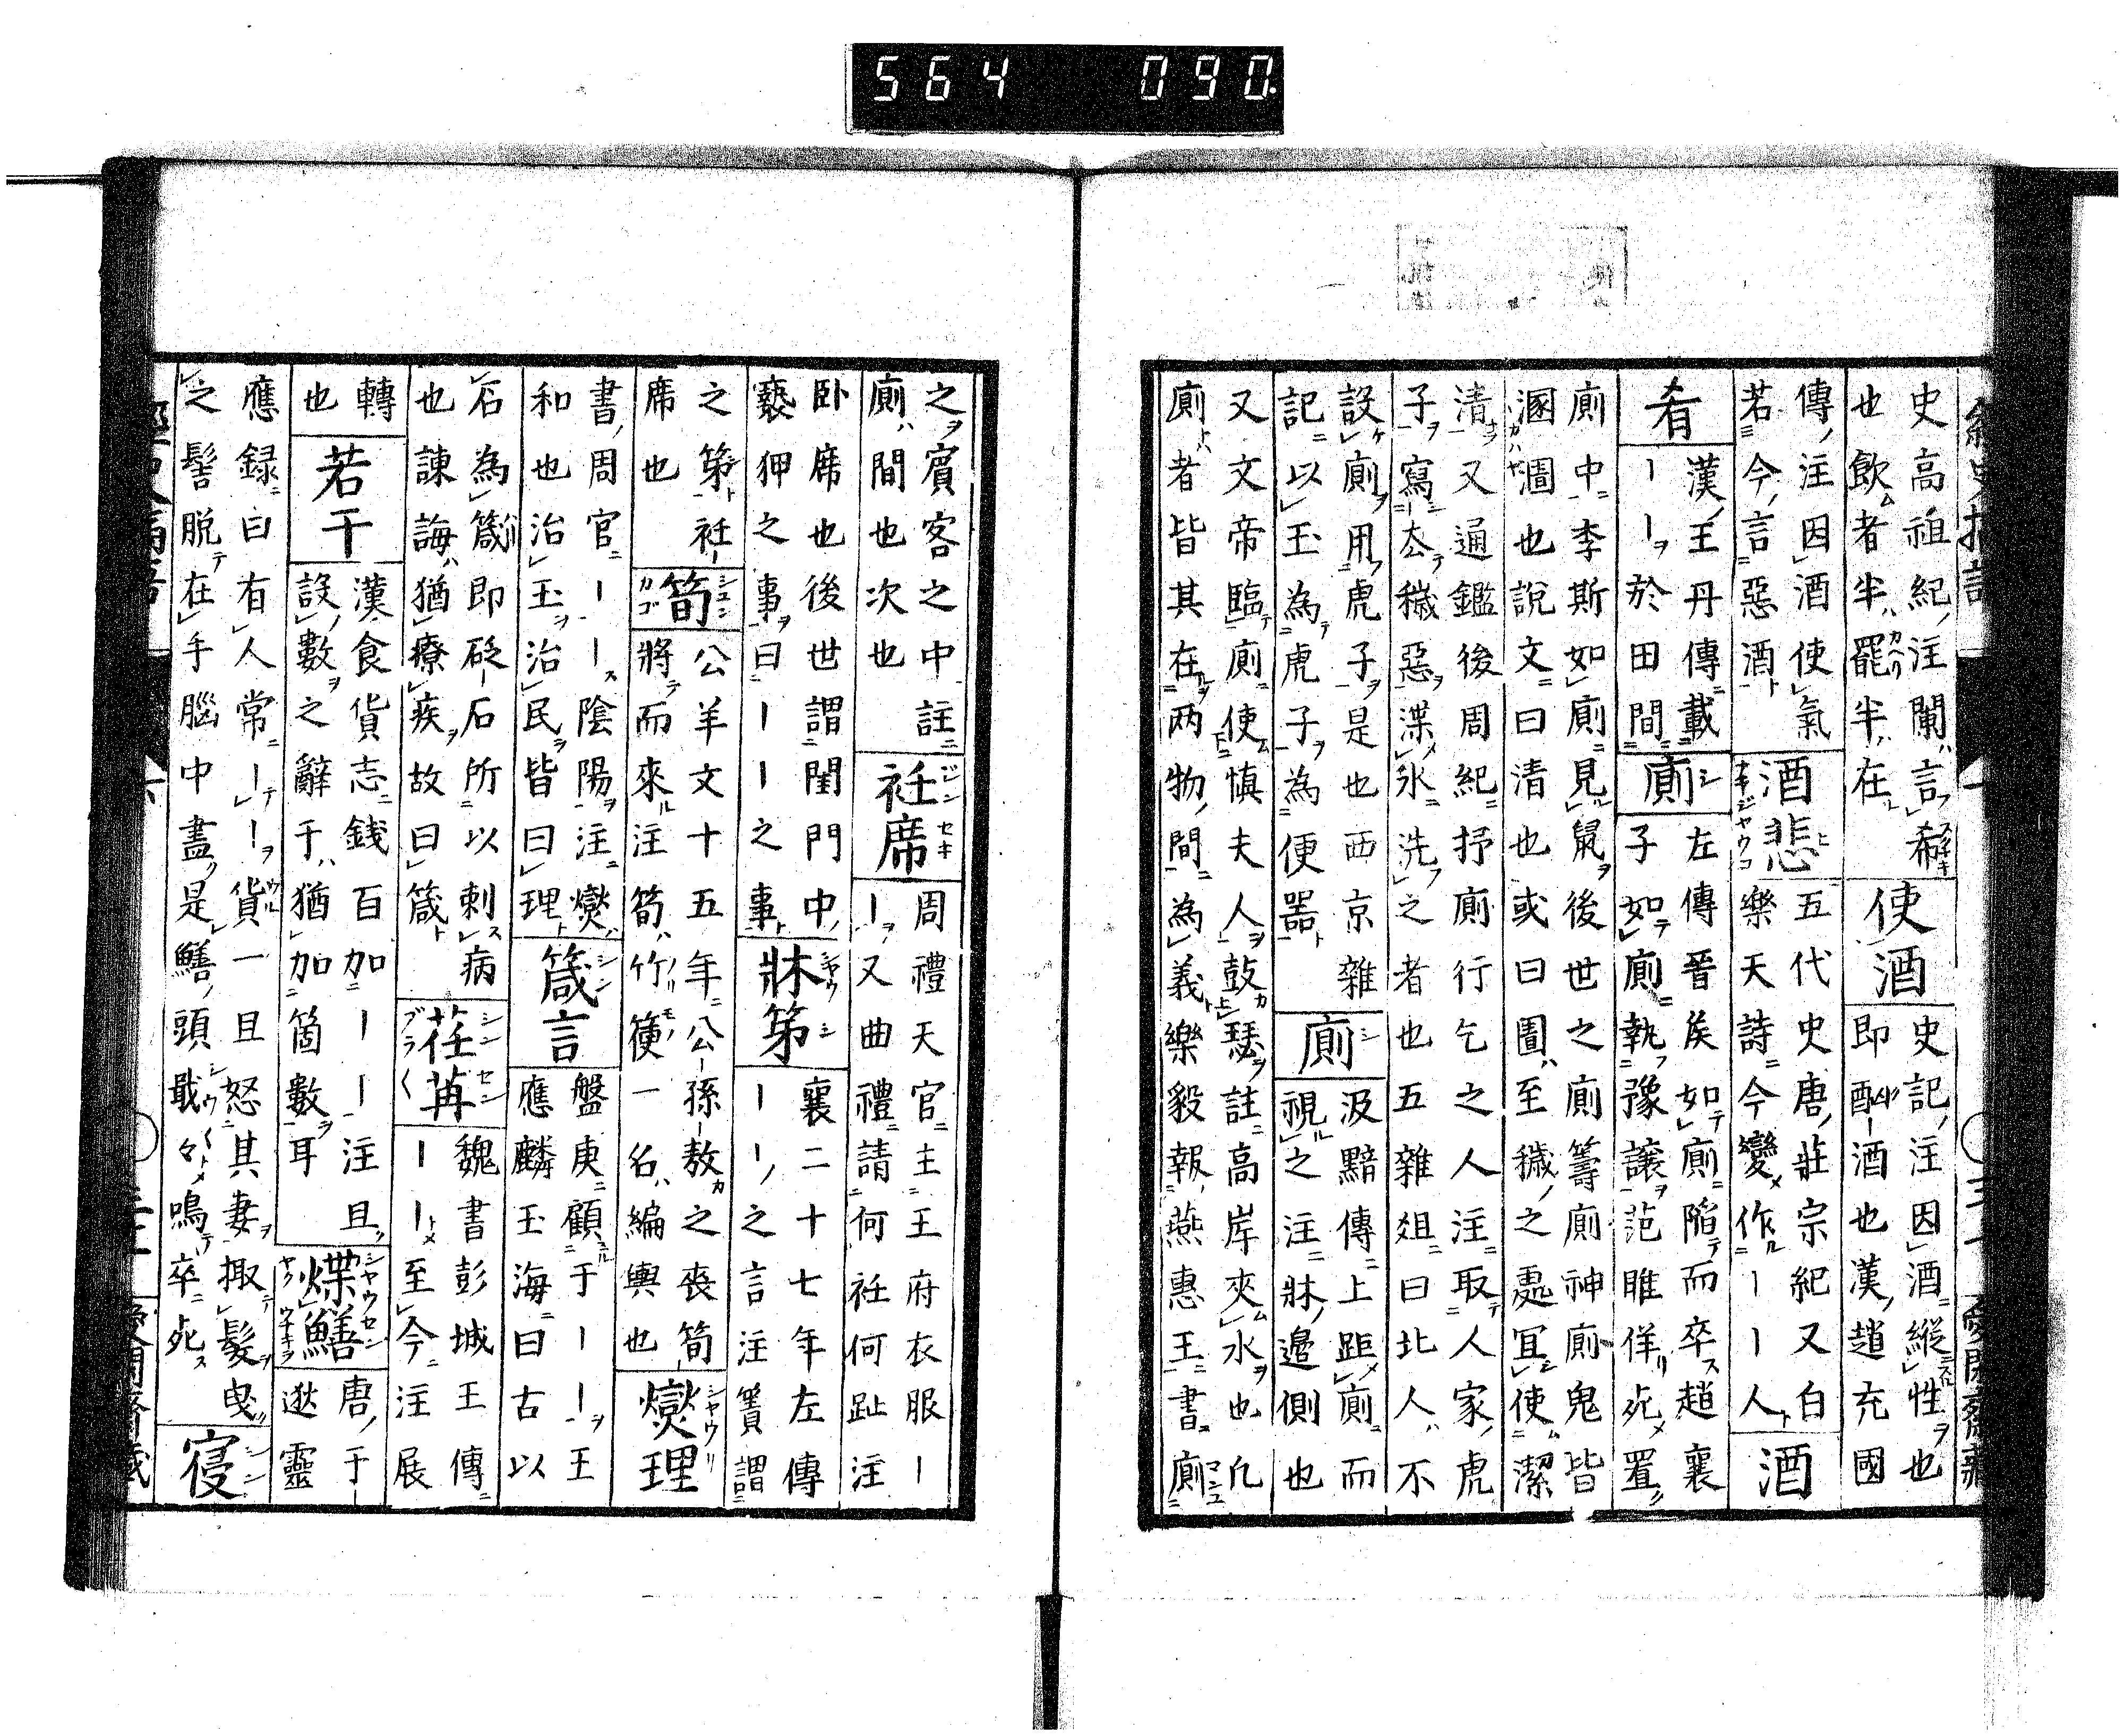 564 090
史高祖紀注闌言希
也飲者半罷半在
使酒
史記注因酒縱性也
即酗酒也漢趙充國
傳注因酒使氣
若今言惡酒
酒悲
五代史唐莊宗紀又白
樂天詩今變作ーー人
酒
肴
漢王丹傳載
ーー於田間
廁
左傳晉矦如廁陷而卒趙襄
子如廁執豫讓范睢佯死置
廁中李斯如廁見鼠後世之廁籌廁神廁鬼皆
溷圊也說文曰清也或曰圊至穢之處宜使潔
清又通鑑後周紀抒廁行乞之人注取人家虎
子寫去穢惡渫氷洗之者也五雜俎曰北人不
設廁用虎子是也西京雜
記以玉為虎子為便噐
廁
汲黯傳上距廁而
視之注牀邉側也
又文帝臨廁使慎夫人鼓瑟註高岸夾水也凢
廁者皆其在两物間為義樂毅報燕惠王書廁
之賓客之中註
廁間也次也
衽席
周禮天官主王府衣服ー
ー又曲禮請何衽何趾注
卧席也後世謂閨門中
褻狎之事曰ーー之事
牀第
襄二十七年左傳
ーー之言注簀謂
之第衽
席也
筍
公羊文十五年公孫敖之喪筍
將而來注筍竹箯一名編輿也
燮理
書周官ーー陰陽注燮
和也治玉治民皆曰理
箴言
盤庚顧于ーー王
應麟玉海曰古以
石為箴即砭石所以刺病
也諫誨猶療疾故曰箴
荏苒
魏書彭城王傳
ーー至今注展
轉
也
若干
漢食貨志錢百加ーー注且
設數之辭于猶加箇數耳
煠鱔
唐于逖靈
應録曰有人常ーー貨一旦怒其妻掫髮曳
之髻脱在手腦中盡是鱔頭戢々鳴卒死
寑